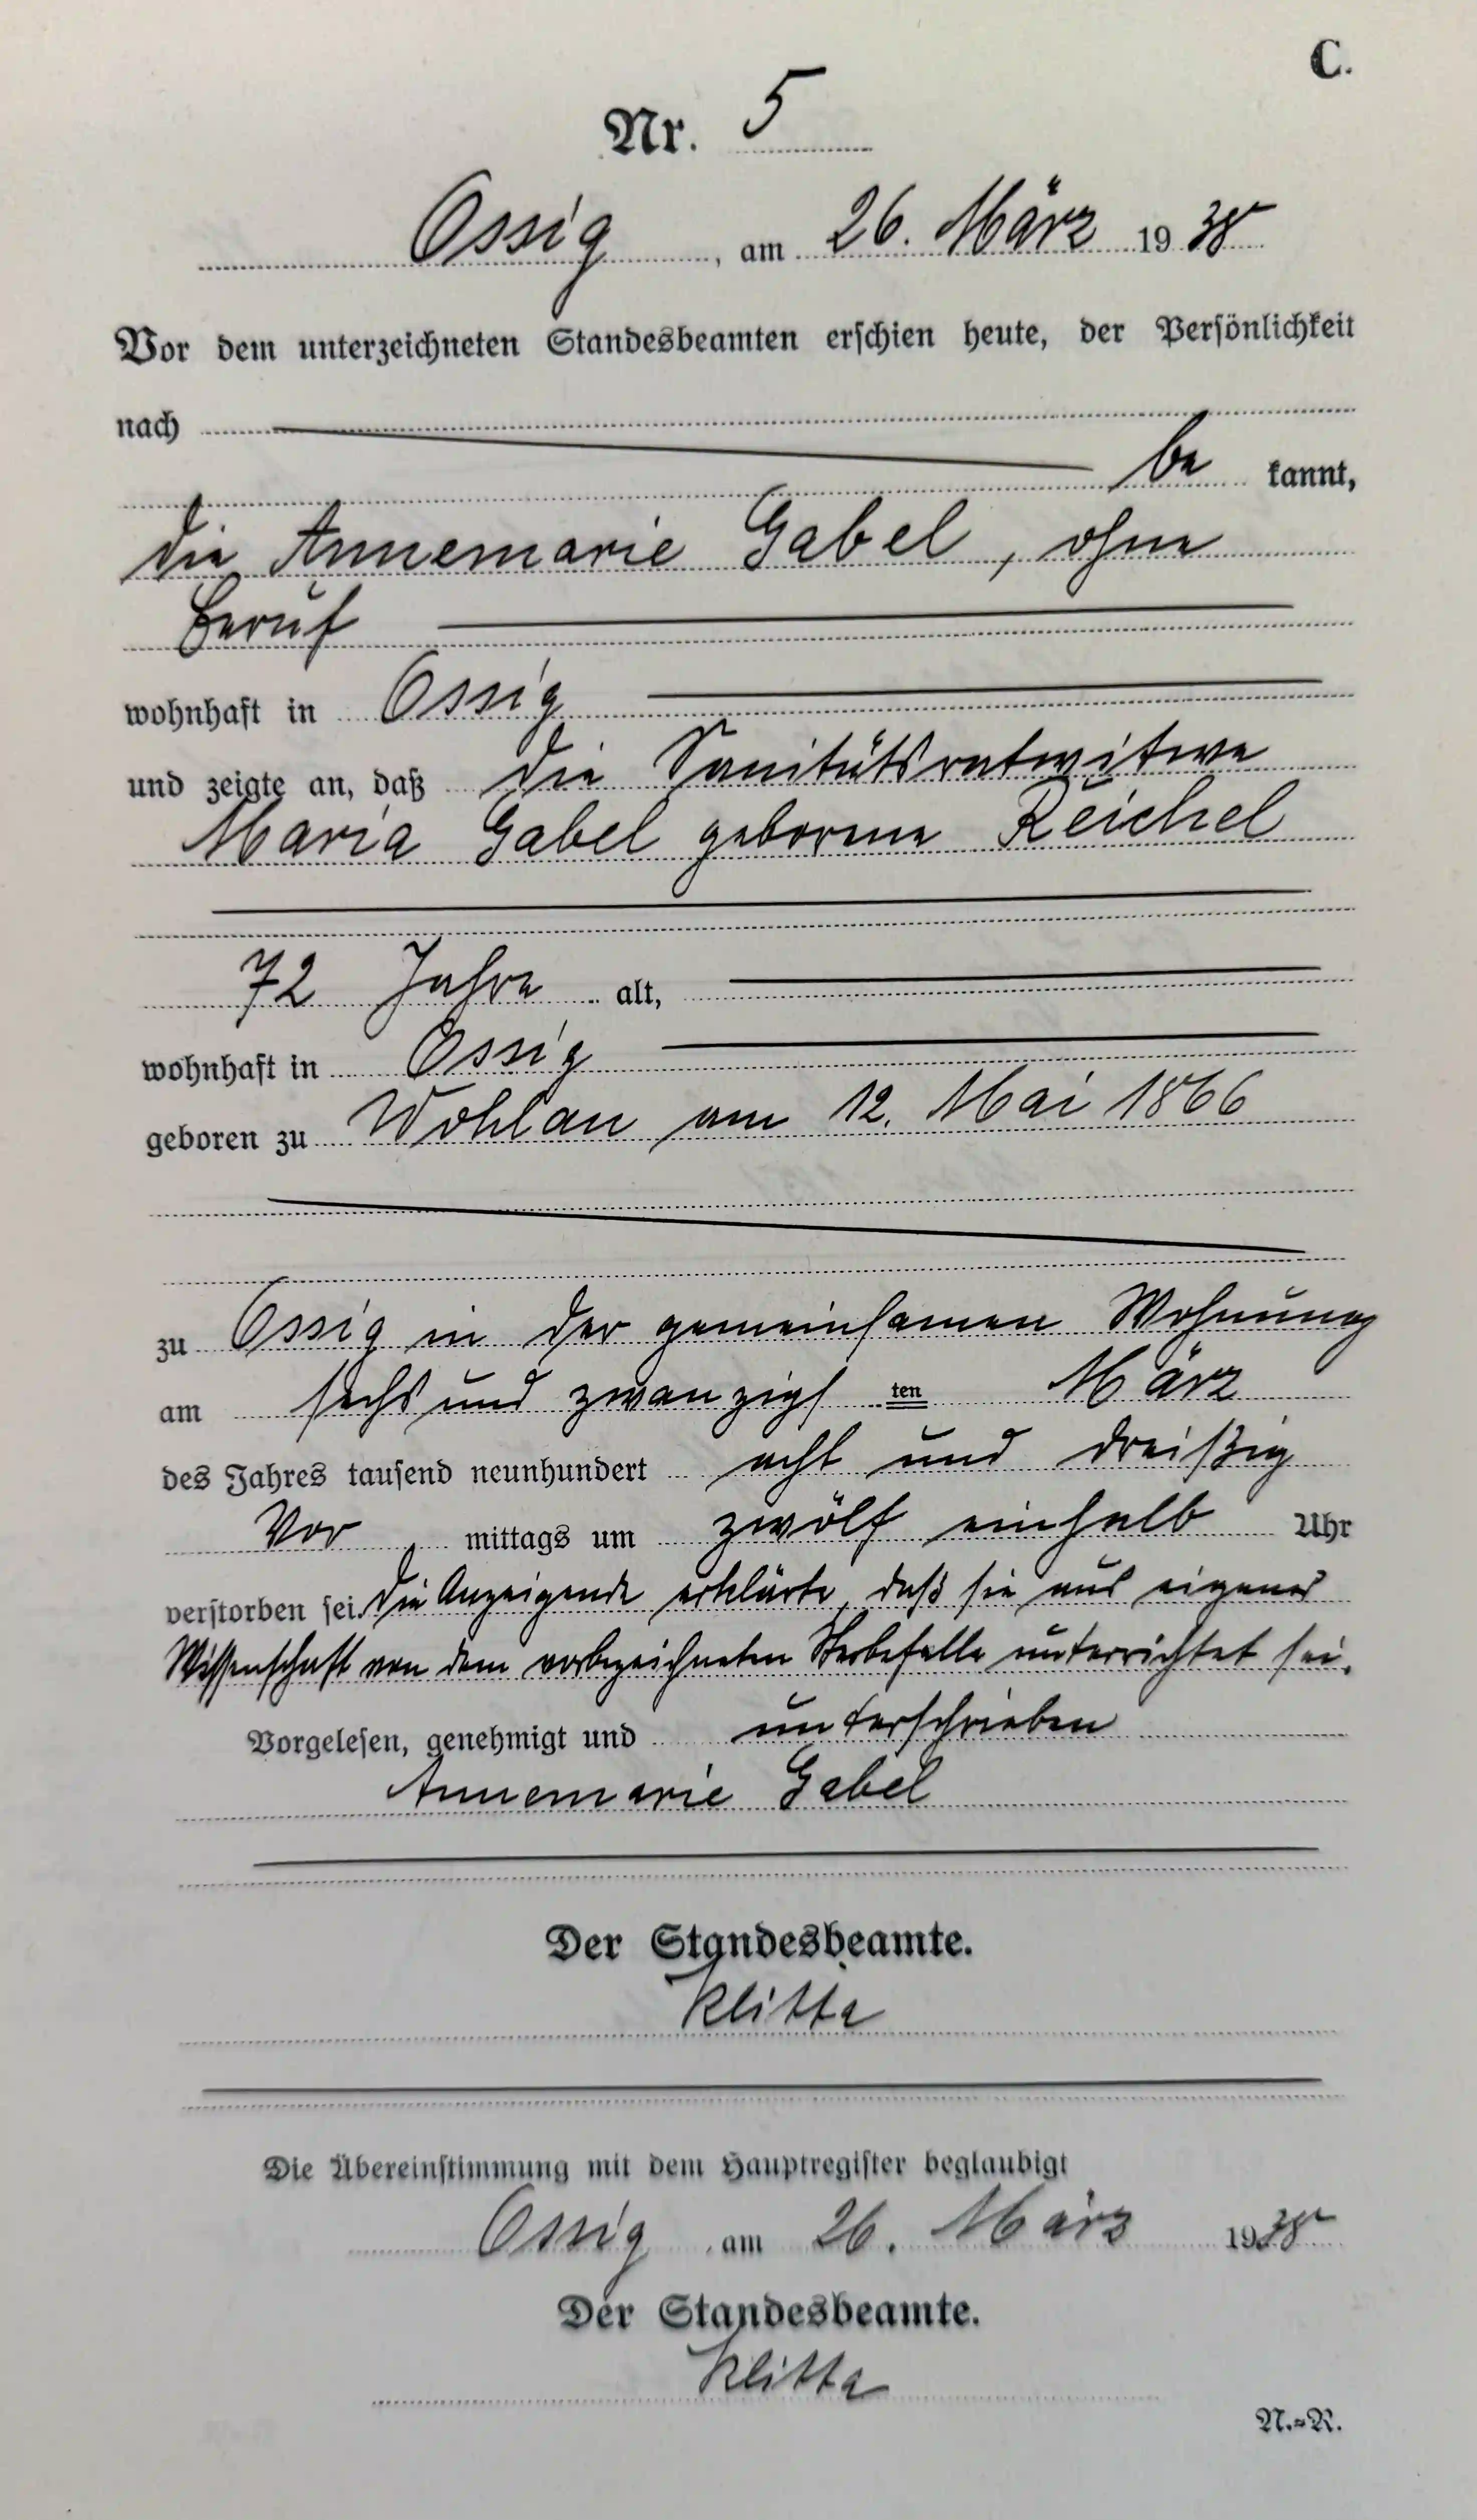 C.
Nr. 5
Ossig, am 26. März 1938
Vor dem unterzeichneten Standesbeamten erschien heute, der Persönlichkeit
nach
be kannt,
die Annemarie Gabel, ohne
Beruf
wohnhaft in Ossig
und zeigte an, daß die Sanitätsratwitwe
Maria Gabel geborene Reichel
72 Jahre alt,
wohnhaft in Ossig
geboren zu Wohlau am 12. Mai 1866
zu Ossig in der gemeinsamen Wohnung
am sechs und zwanzigs ten März
des Jahres tausend neunhundert acht und dreißig
Vor mittags um zwölf einhalb Uhr
verstorben sei. Die Anzeigende erklärte, daß sie aus eigener
Wissenschaft von dem vorbezeichneten Sterbefalle unterrichtet sei.
Vorgelesen, genehmigt und unterschrieben
Annemarie Gabel
Der Standesbeamte.
Klitta
Die Übereinstimmung mit dem Hauptregister beglaubigt
Ossig, am 26. März 1938
Der Standesbeamte.
Klitta
N.=R.